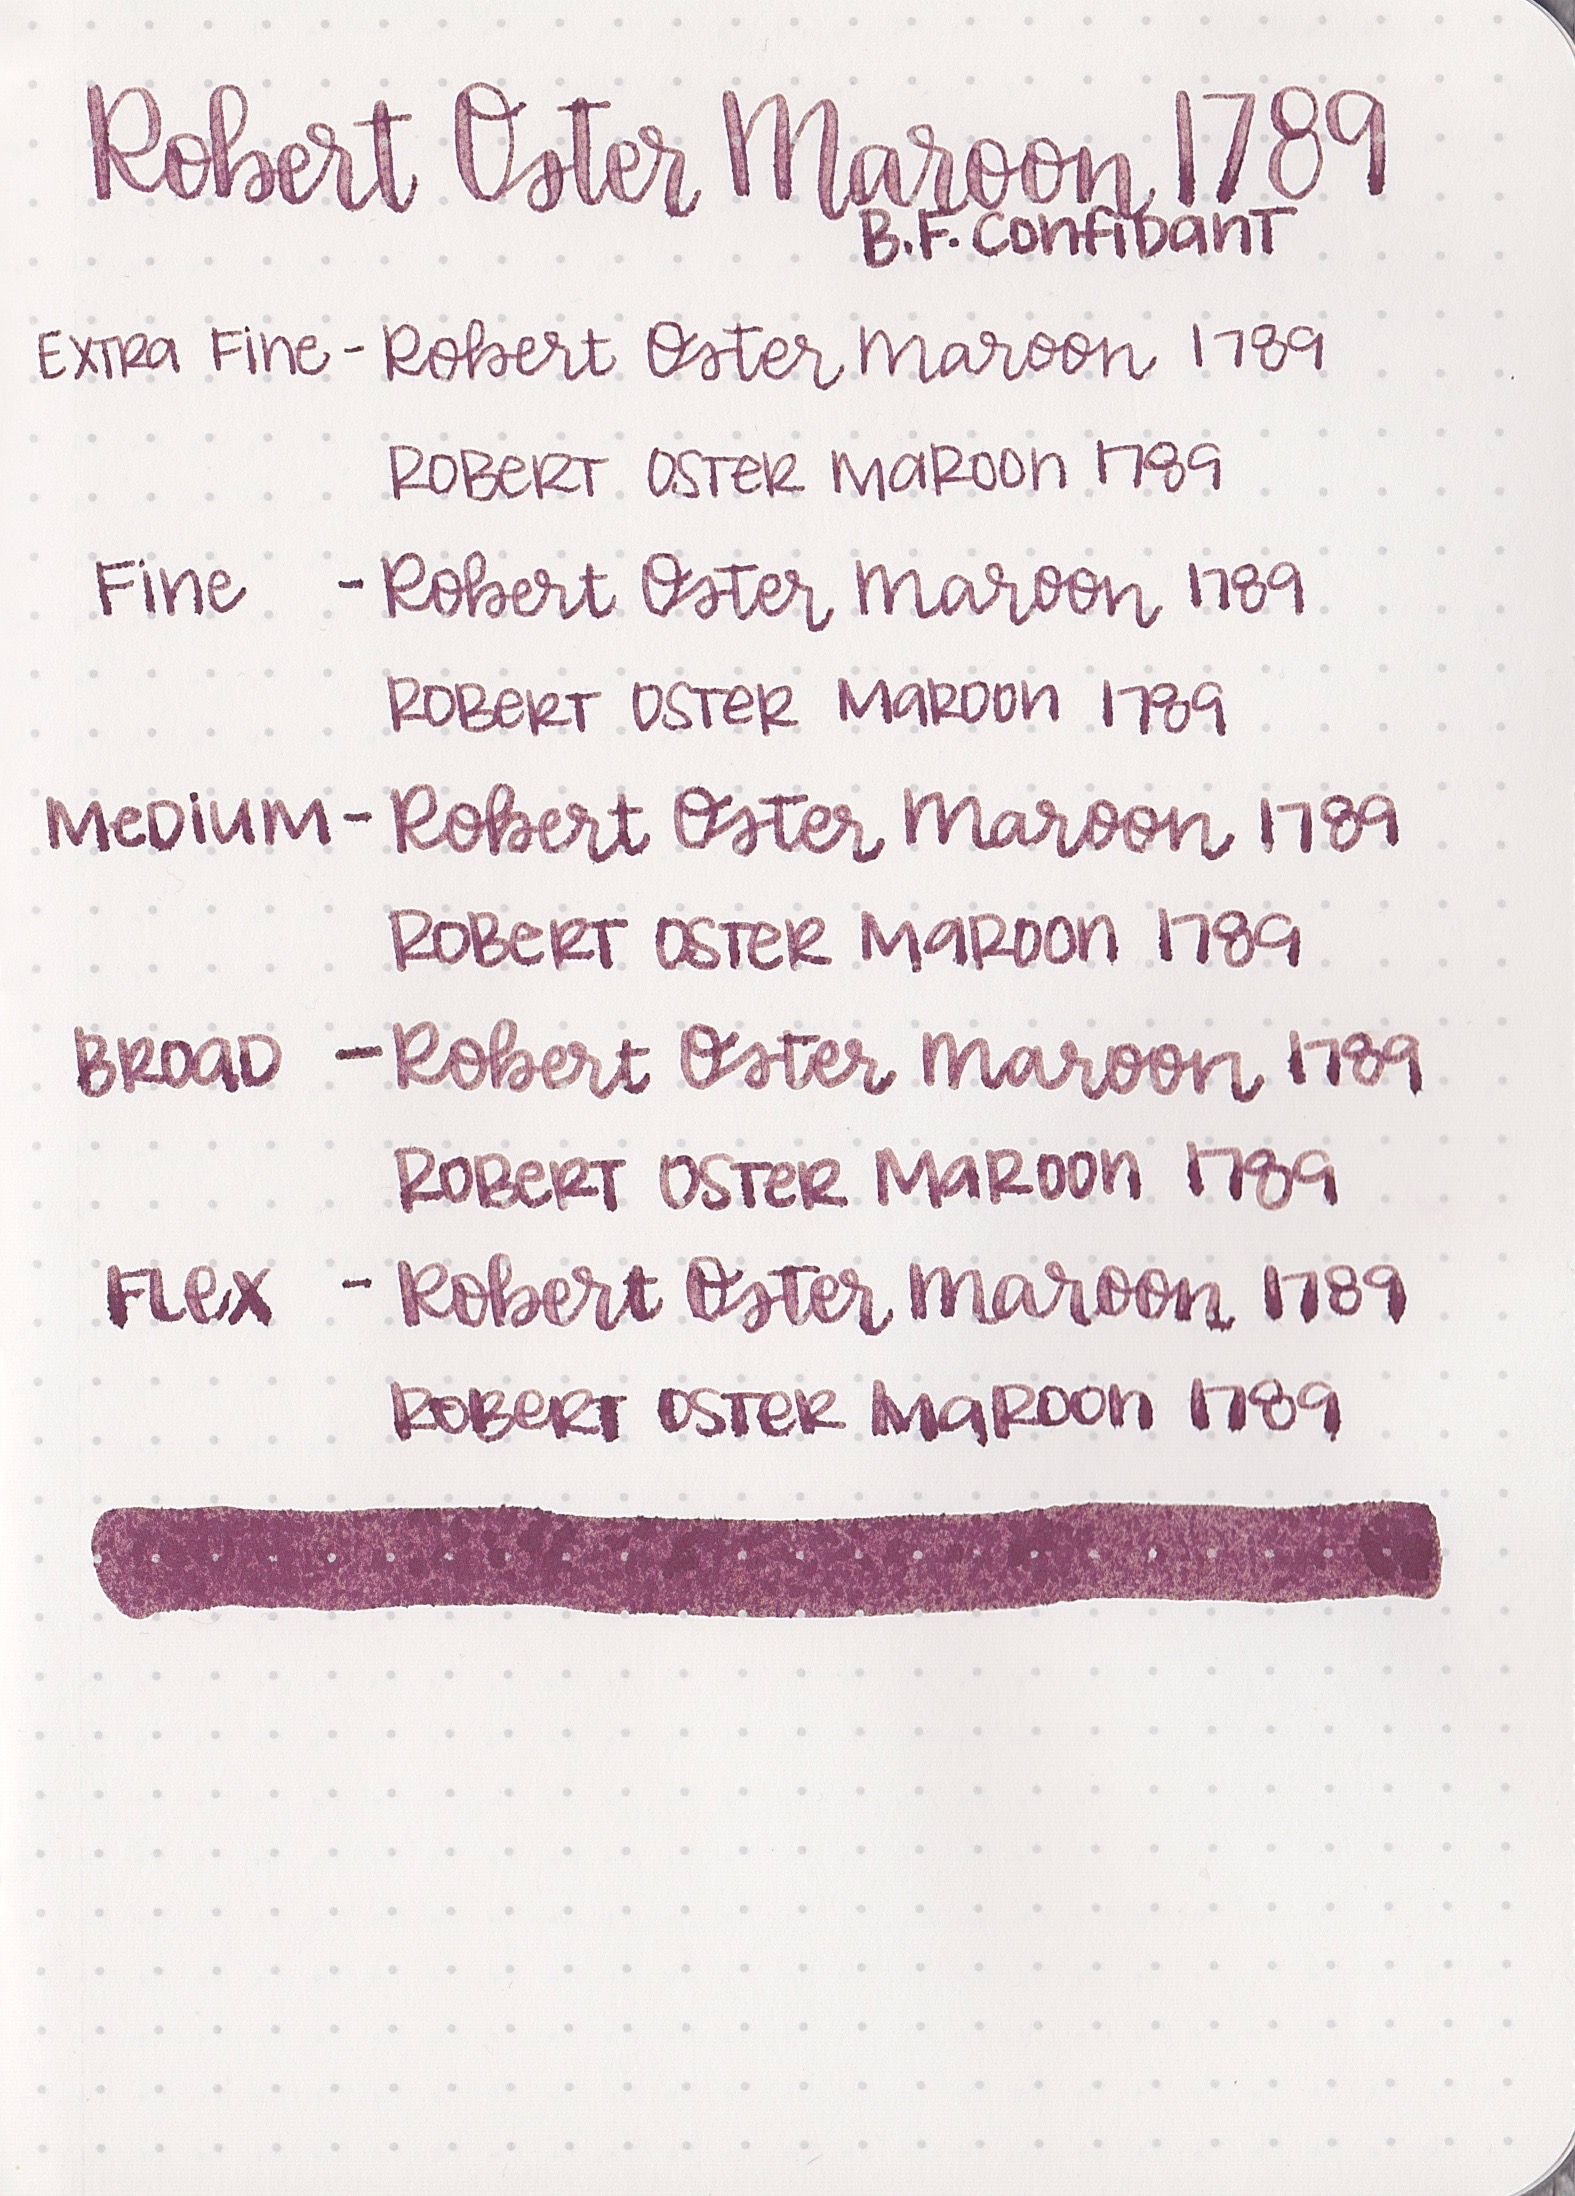 Robert Oster Maroon 1789
B.F. Confidant
Extra Fine - Robert Oster Maroon 1789
Robert Oster Maroon 1789
Fine - Robert Oster Maroon 1789
Robert Oster Maroon 1789
Medium - Robert Oster Maroon 1789
Robert Oster Maroon 1789
Broad - Robert Oster Maroon 1789
Robert Oster Maroon 1789
Flex - Robert Oster Maroon 1789
Robert Oster Maroon 1789